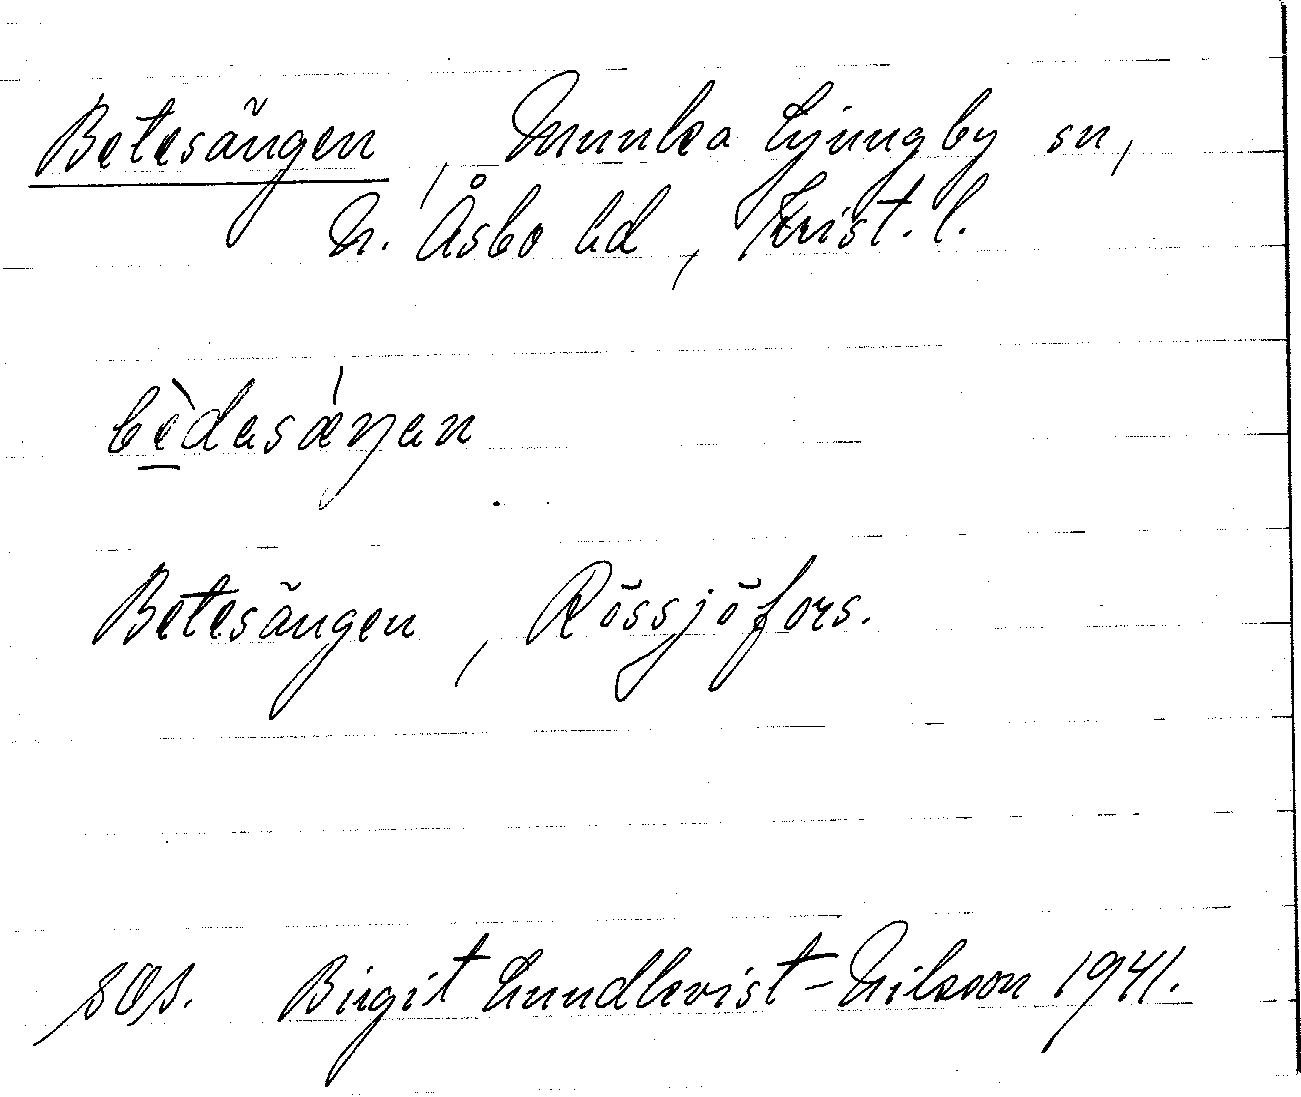 Betesängen, Munka Ljungby sn,
N. Åsbo hd, Krist. l.
bèdasáŋan
Betesängen, Rössjöfors.
Birgit Lundkvist-Nilsson 1941.